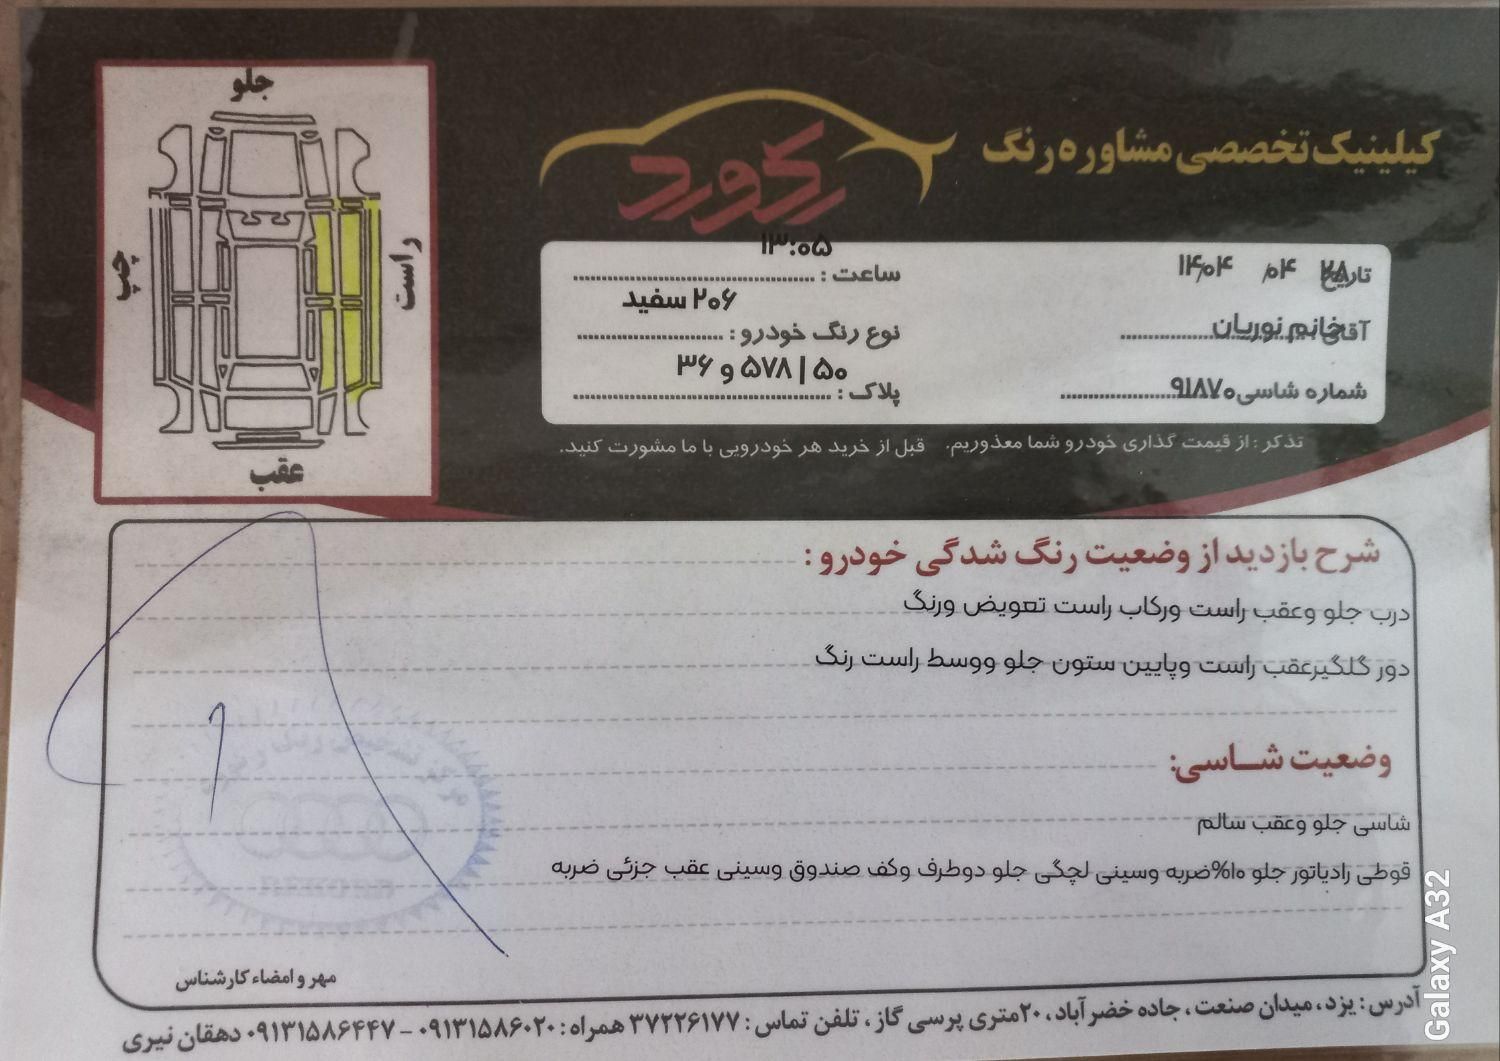 جلو
چپ
راست
عقب
کیلینیک تخصصی مشاوره رنگ
رکورد
تاریخ ۲۸ /۰۴ ۱۴۰۴/
ساعت : ۱۳:۰۵
آقای خانم نوریان
نوع رنگ خودرو : ۲۰۶ سفید
شماره شاسی ۹۱۸۷۰
پلاک : ۵۰ | ۵۷۸ و ۳۶
تذکر : از قیمت گذاری خودرو شما معذوریم. قبل از خرید هر خودرویی با ما مشورت کنید.
شرح بازدید از وضعیت رنگ شدگی خودرو :
درب جلو وعقب راست ورکاب راست تعویض ورنگ
دور گلگیرعقب راست وپایین ستون جلو ووسط راست رنگ
وضعیت شاسی:
شاسی جلو وعقب سالم
قوطی رادیاتور جلو ۱۰%ضربه وسینی لچگی جلو دوطرف وکف صندوق وسینی عقب جزئی ضربه
مهر و امضاء کارشناس
آدرس : یزد، میدان صنعت ، جاده خضرآباد، ۲۰متری پرسی گاز ، تلفن تماس : ۳۷۲۲۶۱۷۷ همراه : ۰۹۱۳۱۵۸۶۰۲۰ - ۰۹۱۳۱۵۸۶۴۴۷ دهقان نیری
Galaxy A32